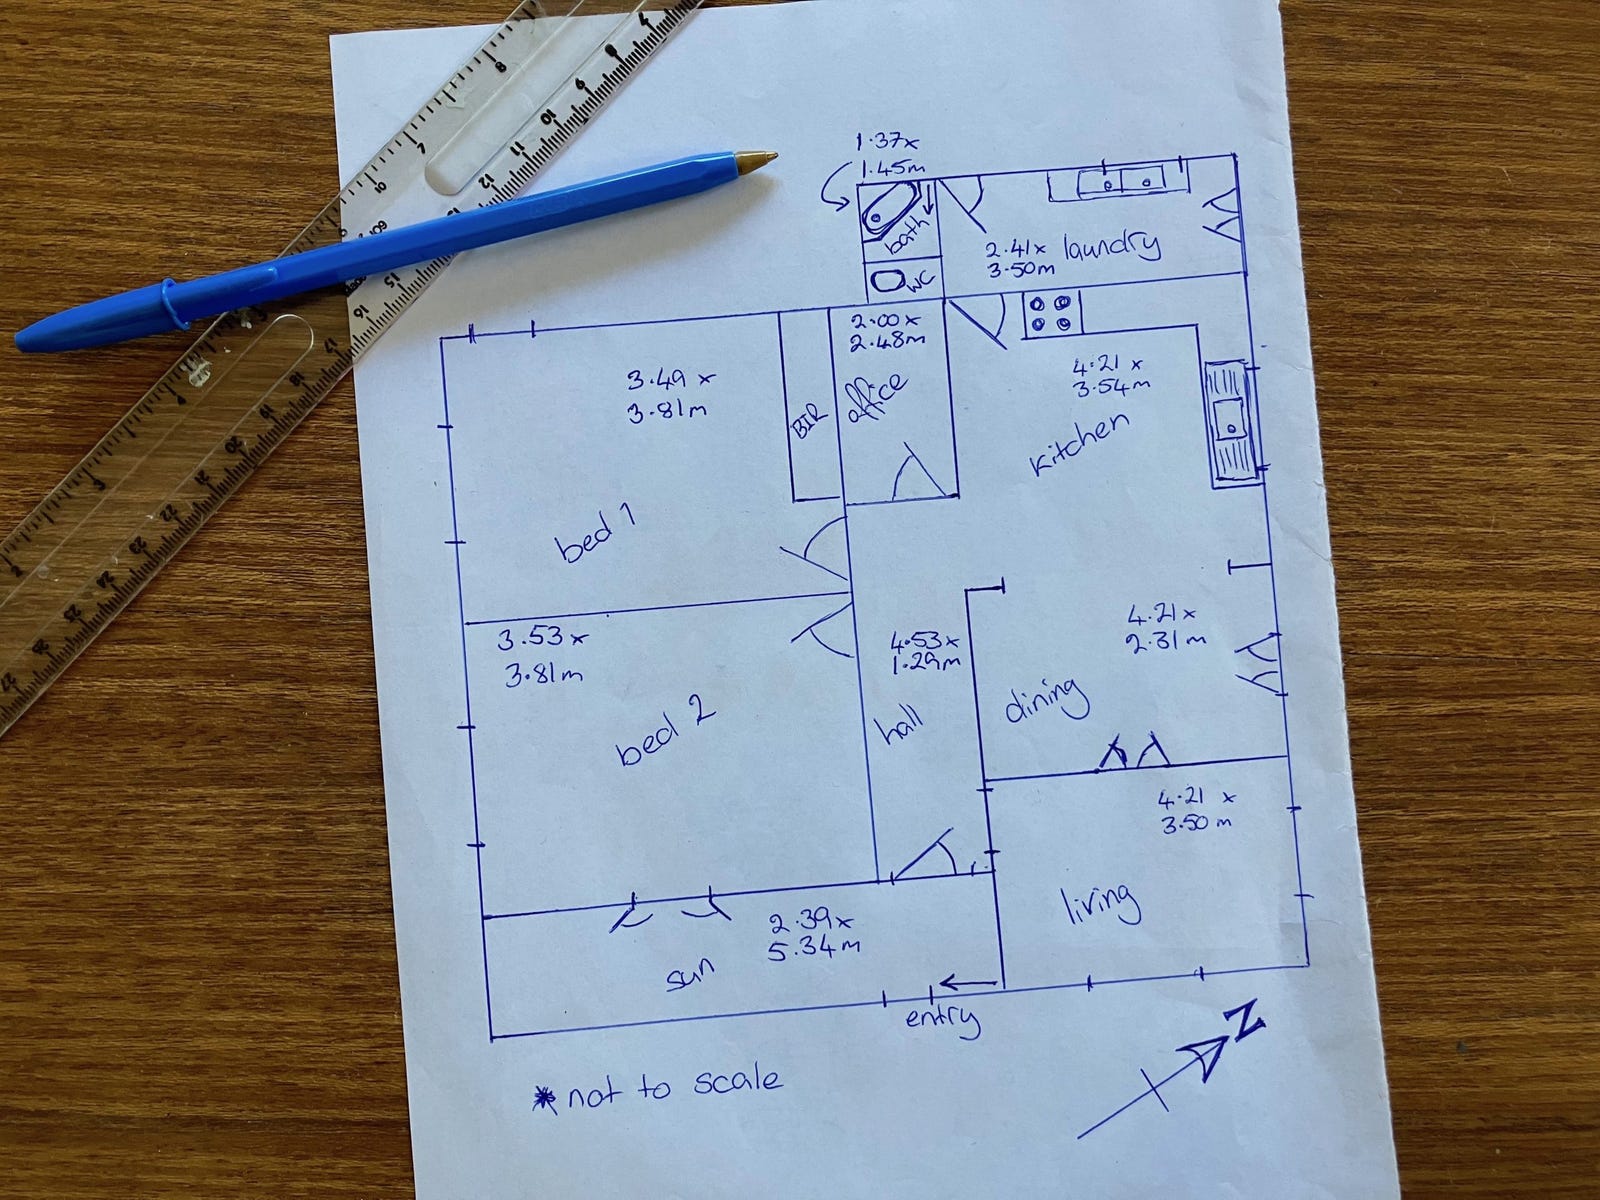 1.37x
1.45m
bath
WC
2.41x
3.50m
laundry
2.00x
2.48m
office
BIR
3.49 x
3.81m
bed 1
4.21 x
3.54m
kitchen
3.53x
3.81m
bed 2
4.53x
1.29m
hall
4.21x
2.31m
dining
4.21 x
3.50 m
living
2.39x
5.34m
sun
entry
N
*not to scale